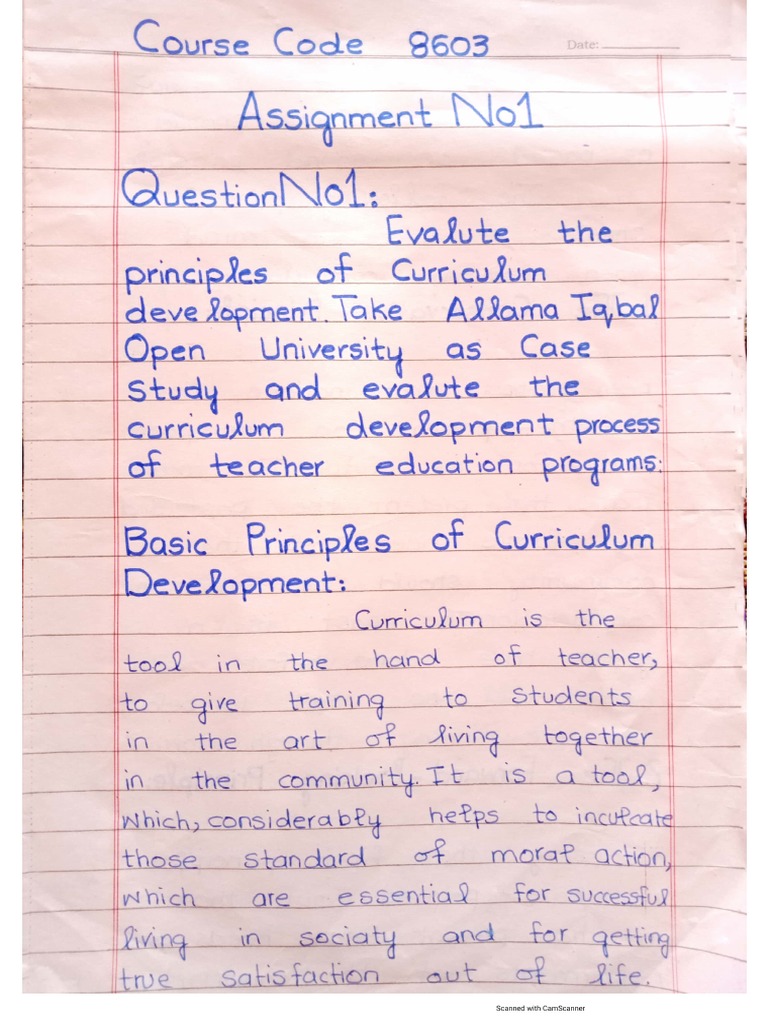 Course Code 8603
Date:
Assignment No1
Question No1:
Evalute the
principles of Curriculum
development. Take Allama Iqbal
Open University as Case
study and evalute the
curriculum development process
of teacher education programs:
Basic Principles of Curriculum
Development:
Curriculum is the
tool in the hand of teacher,
to give training to students
in the art of living together
in the community. It is a tool,
which, considerably helps to inculcate
those standard of moral action,
which are essential for successful
living in sociaty and for getting
true satisfaction out of life.
Scanned with CamScanner